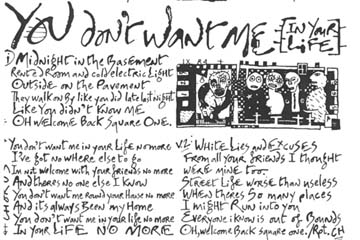 YOU don't want ME [IN YOUR LIFE]
1) Midnight in the Basement
Rent a Room and cold electric Light
Outside on the Pavement
They walk on By like you did late last night
Like You didn't know Me
Oh Welcome Back Square One.
CHORUS
You don't want me in your Life no more
I've got no where else to go
I'm not welcome with your friends no more
And theres no one else I know
You don't want me Round your House no more
And its always Been my Home
You don't want me in your life no more
In Your LIFE NO MORE
V2: White Lies and Excuses
From all your friends I thought
were mine too
Street Life worse than useless
When theres so many places
I might Run into you
Everyone i know is out of Bounds
Oh, welcome Back square one. /Rpt. CH